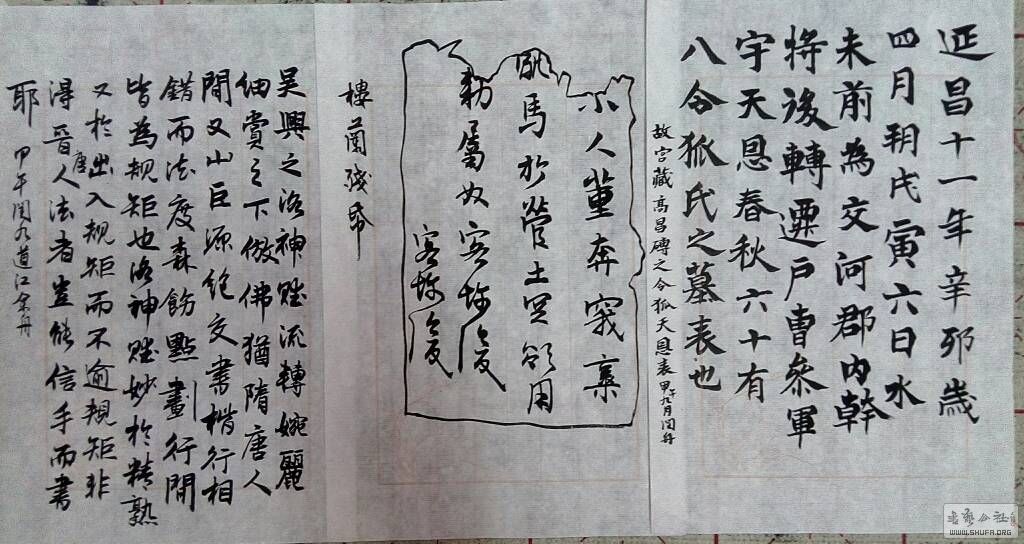 延昌十一年辛卯歲
四月朔戊寅六日水
未前為交河郡內幹
將後轉遷戶曹參軍
宇天恩春秋六十有
八令狐氏之墓表也
故宮藏高昌磚之令狐天恩表甲午九月閏舟
小人董奔竊棄
馬於營土
勑屬奴客
樓蘭殘帋
吳興之洛神賦流轉婉麗
細賞之下倣佛猶隋唐人
間又山巨源絕交書楷行相
錯而法度森飭點畫行間
皆為規矩也洛神賦妙於精熟
又於唐出入規矩而不逾規矩非
得晉人法者豈能信手而書
耶
甲午閏九道江余舟
書法公社
WWW.SHUFA.ORG